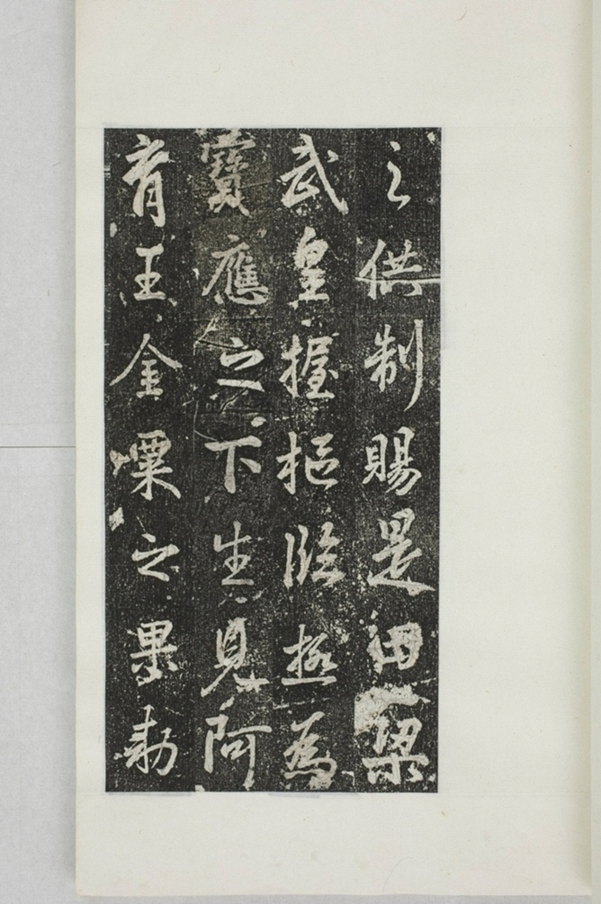 之供制賜是田梁
武皇握樞臨極為
寶應之下生見阿
育王金粟之果勅